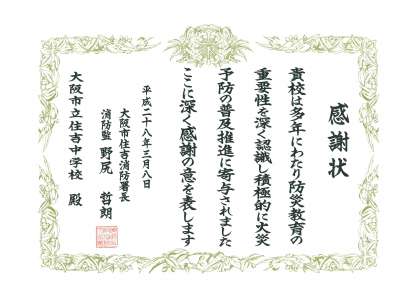 感謝状
貴校は多年にわたり防災教育の
重要性を深く認識し積極的に火災
予防の普及推進に寄与されました
ここに深く感謝の意を表します
平成二十八年三月八日
大阪市住吉消防署長
消防監 野尻 哲朗
大阪市立住吉中学校 殿